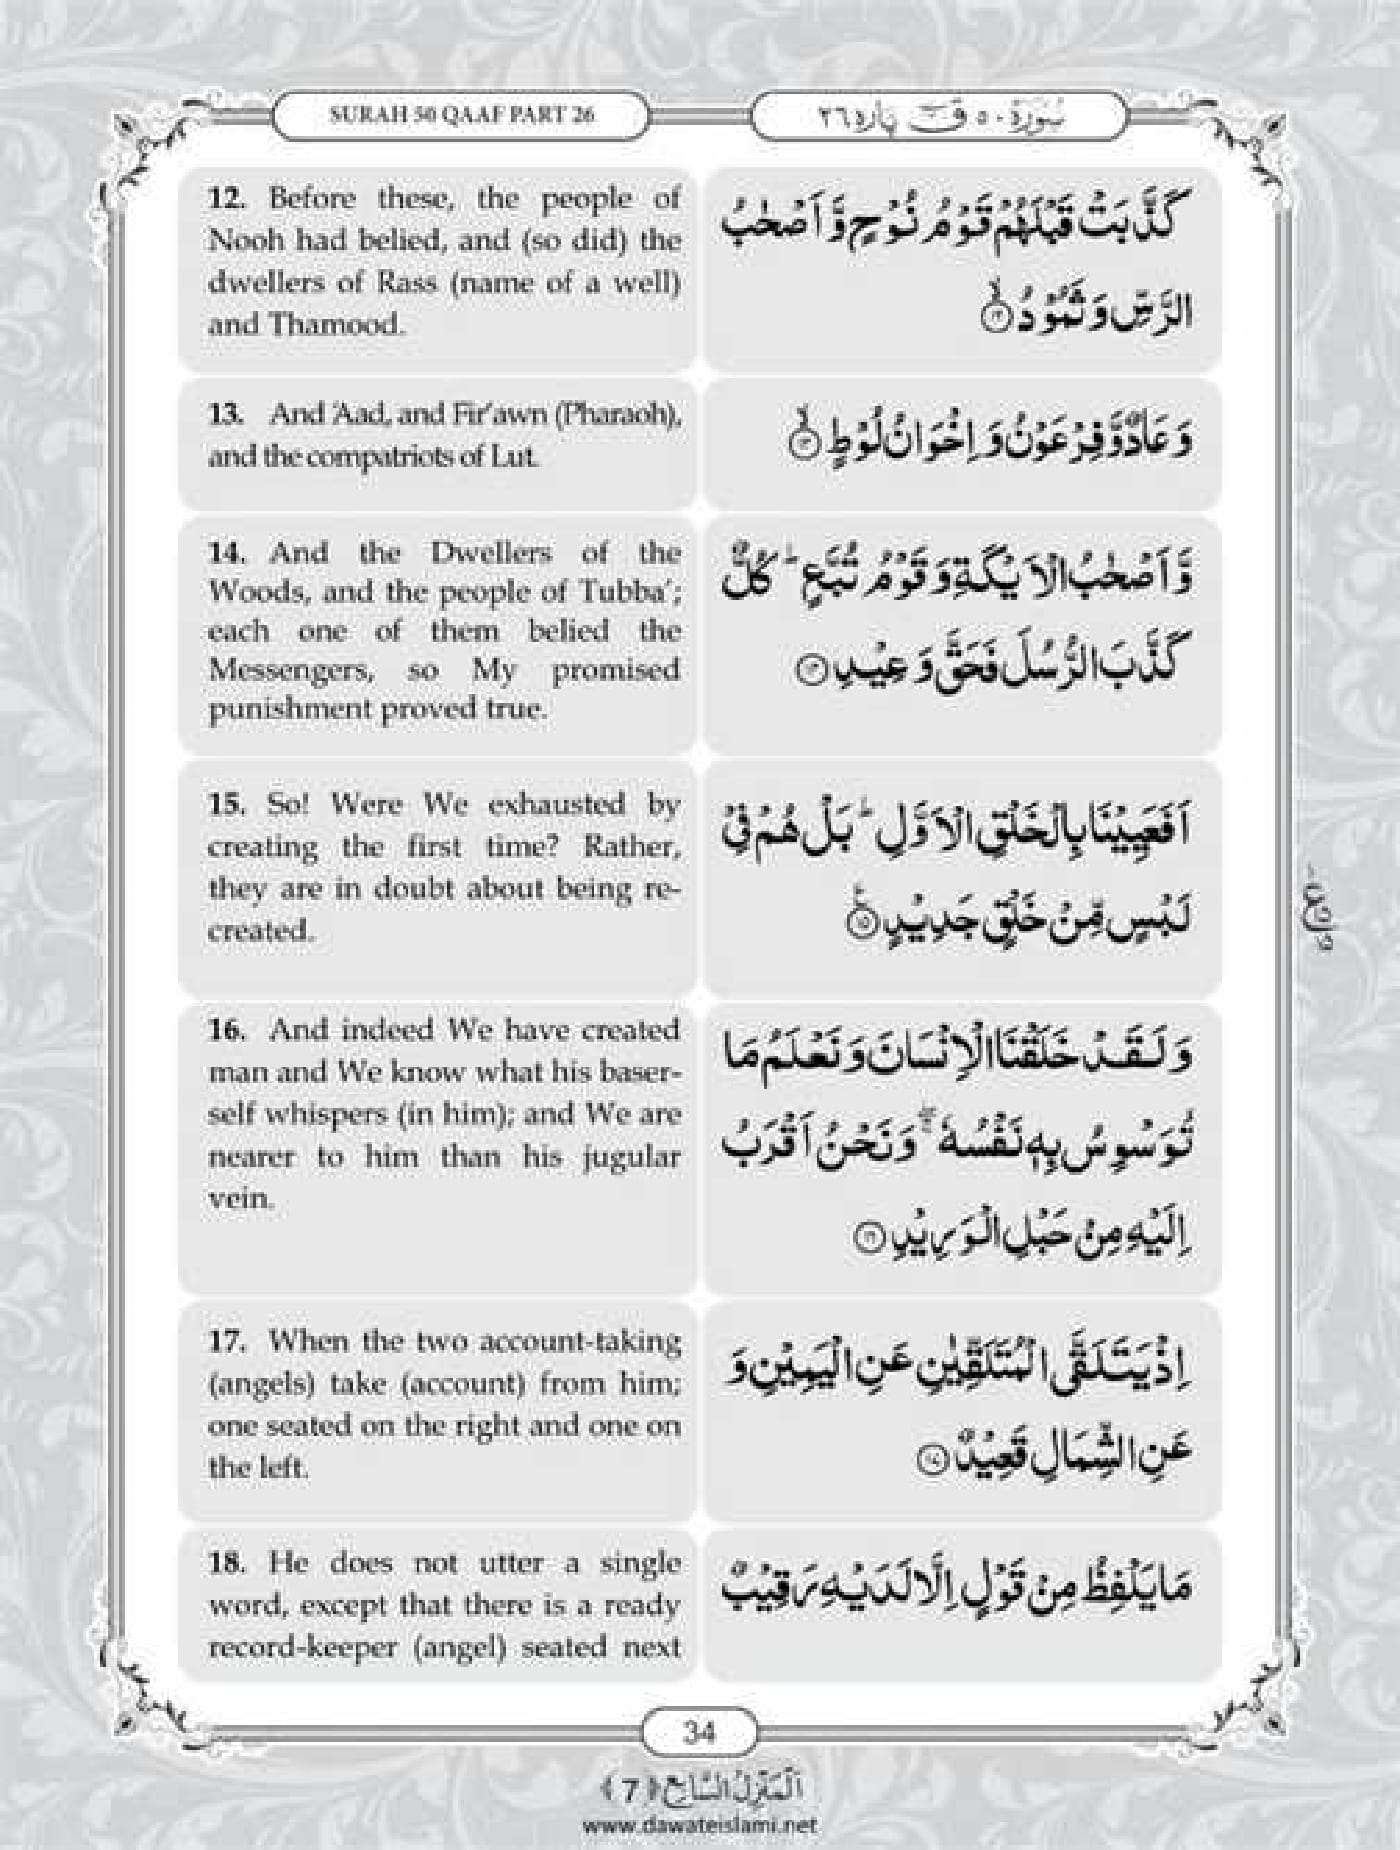 SURAH 50 QAAF PART 26
سُوْرَةُ ٥٠ قٓ پارہ ٢٦
12. Before these, the people of
Nooh had belied, and (so did) the
dwellers of Rass (name of a well)
and Thamood.
كَذَّبَتْ قَبْلَهُمْ قَوْمُ نُوْحٍ وَّ اَصْحٰبُ
الرَّسِّ وَ ثَمُوْدُ ۙ﴿۱۲﴾
13. And 'Aad, and Fir'awn (Pharaoh),
and the compatriots of Lut.
وَ عَادٌ وَّ فِرْعَوْنُ وَ اِخْوَانُ لُوْطٍ ۙ﴿۱۳﴾
14. And the Dwellers of the
Woods, and the people of Tubba';
each one of them belied the
Messengers, so My promised
punishment proved true.
وَّ اَصْحٰبُ الْاَیْكَةِ وَ قَوْمُ تُبَّعٍ ؕ كُلٌّ
كَذَّبَ الرُّسُلَ فَحَقَّ وَعِیْدِ ﴿۱۴﴾
15. So! Were We exhausted by
creating the first time? Rather,
they are in doubt about being re-
created.
اَفَعَیِیْنَا بِالْخَلْقِ الْاَوَّلِ ؕ بَلْ هُمْ فِیْ
لَبْسٍ مِّنْ خَلْقٍ جَدِیْدٍ ﴿۱۵﴾
16. And indeed We have created
man and We know what his baser-
self whispers (in him); and We are
nearer to him than his jugular
vein.
وَ لَقَدْ خَلَقْنَا الْاِنْسَانَ وَ نَعْلَمُ مَا
تُوَسْوِسُ بِهٖ نَفْسُهٗ ۚۖ وَ نَحْنُ اَقْرَبُ
اِلَیْهِ مِنْ حَبْلِ الْوَرِیْدِ ﴿۱۶﴾
17. When the two account-taking
(angels) take (account) from him;
one seated on the right and one on
the left.
اِذْ یَتَلَقَّی الْمُتَلَقِّیٰنِ عَنِ الْیَمِیْنِ وَ
عَنِ الشِّمَالِ قَعِیْدٌ ﴿۱۷﴾
18. He does not utter a single
word, except that there is a ready
record-keeper (angel) seated next
مَا یَلْفِظُ مِنْ قَوْلٍ اِلَّا لَدَیْهِ رَقِیْبٌ
34
اَلْمَنْزِلُ السَّابِع ﴿7﴾
www.dawateislami.net